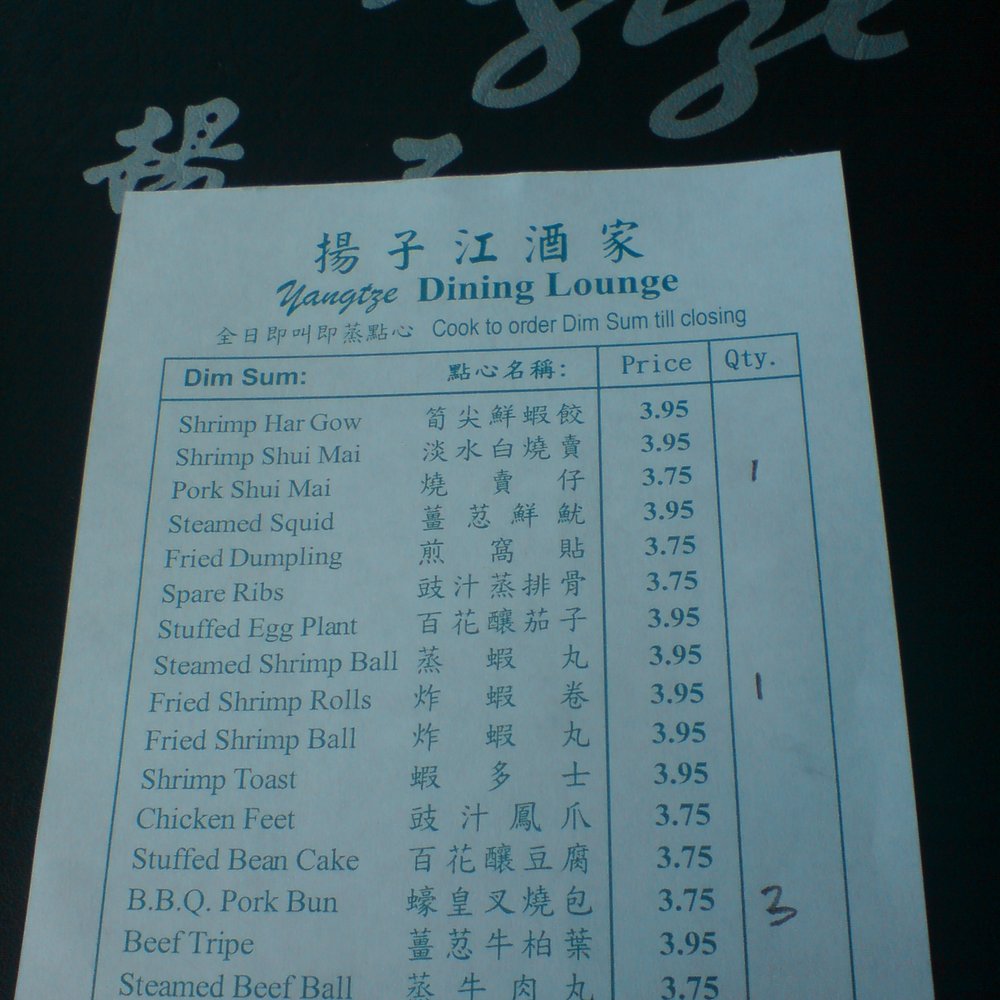 揚子江酒家
Yangtze Dining Lounge
全日即叫即蒸點心 Cook to order Dim Sum till closing
Dim Sum: 點心名稱: Price Qty.
Shrimp Har Gow 筍尖鮮蝦餃 3.95
Shrimp Shui Mai 淡水白燒賣 3.95
Pork Shui Mai 燒賣仔 3.75 1
Steamed Squid 薑葱鮮魷 3.95
Fried Dumpling 煎窩貼 3.75
Spare Ribs 豉汁蒸排骨 3.75
Stuffed Egg Plant 百花釀茄子 3.95
Steamed Shrimp Ball 蒸蝦丸 3.95
Fried Shrimp Rolls 炸蝦卷 3.95 1
Fried Shrimp Ball 炸蝦丸 3.95
Shrimp Toast 蝦多士 3.95
Chicken Feet 豉汁鳳爪 3.75
Stuffed Bean Cake 百花釀豆腐 3.75
B.B.Q. Pork Bun 蠔皇叉燒包 3.75 3
Beef Tripe 薑葱牛柏葉 3.95
Steamed Beef Ball 蒸牛肉丸 3.75